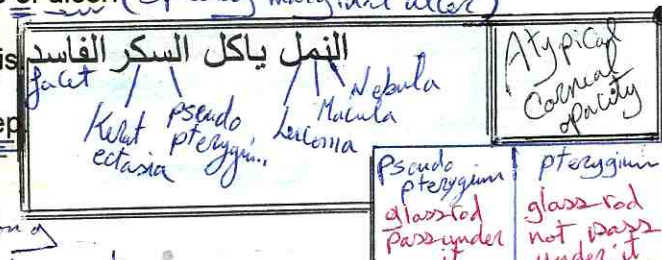 النمل ياكل السكر الفاسد
facet
Kerat
ectasia
pseudo
pterygiu..
Leucoma
Macula
Nebula
Atypical
Corneal
opacity
Pseudo
pterygium
glass rod
pass under
it
pterygium
glass rod
not pass
under it